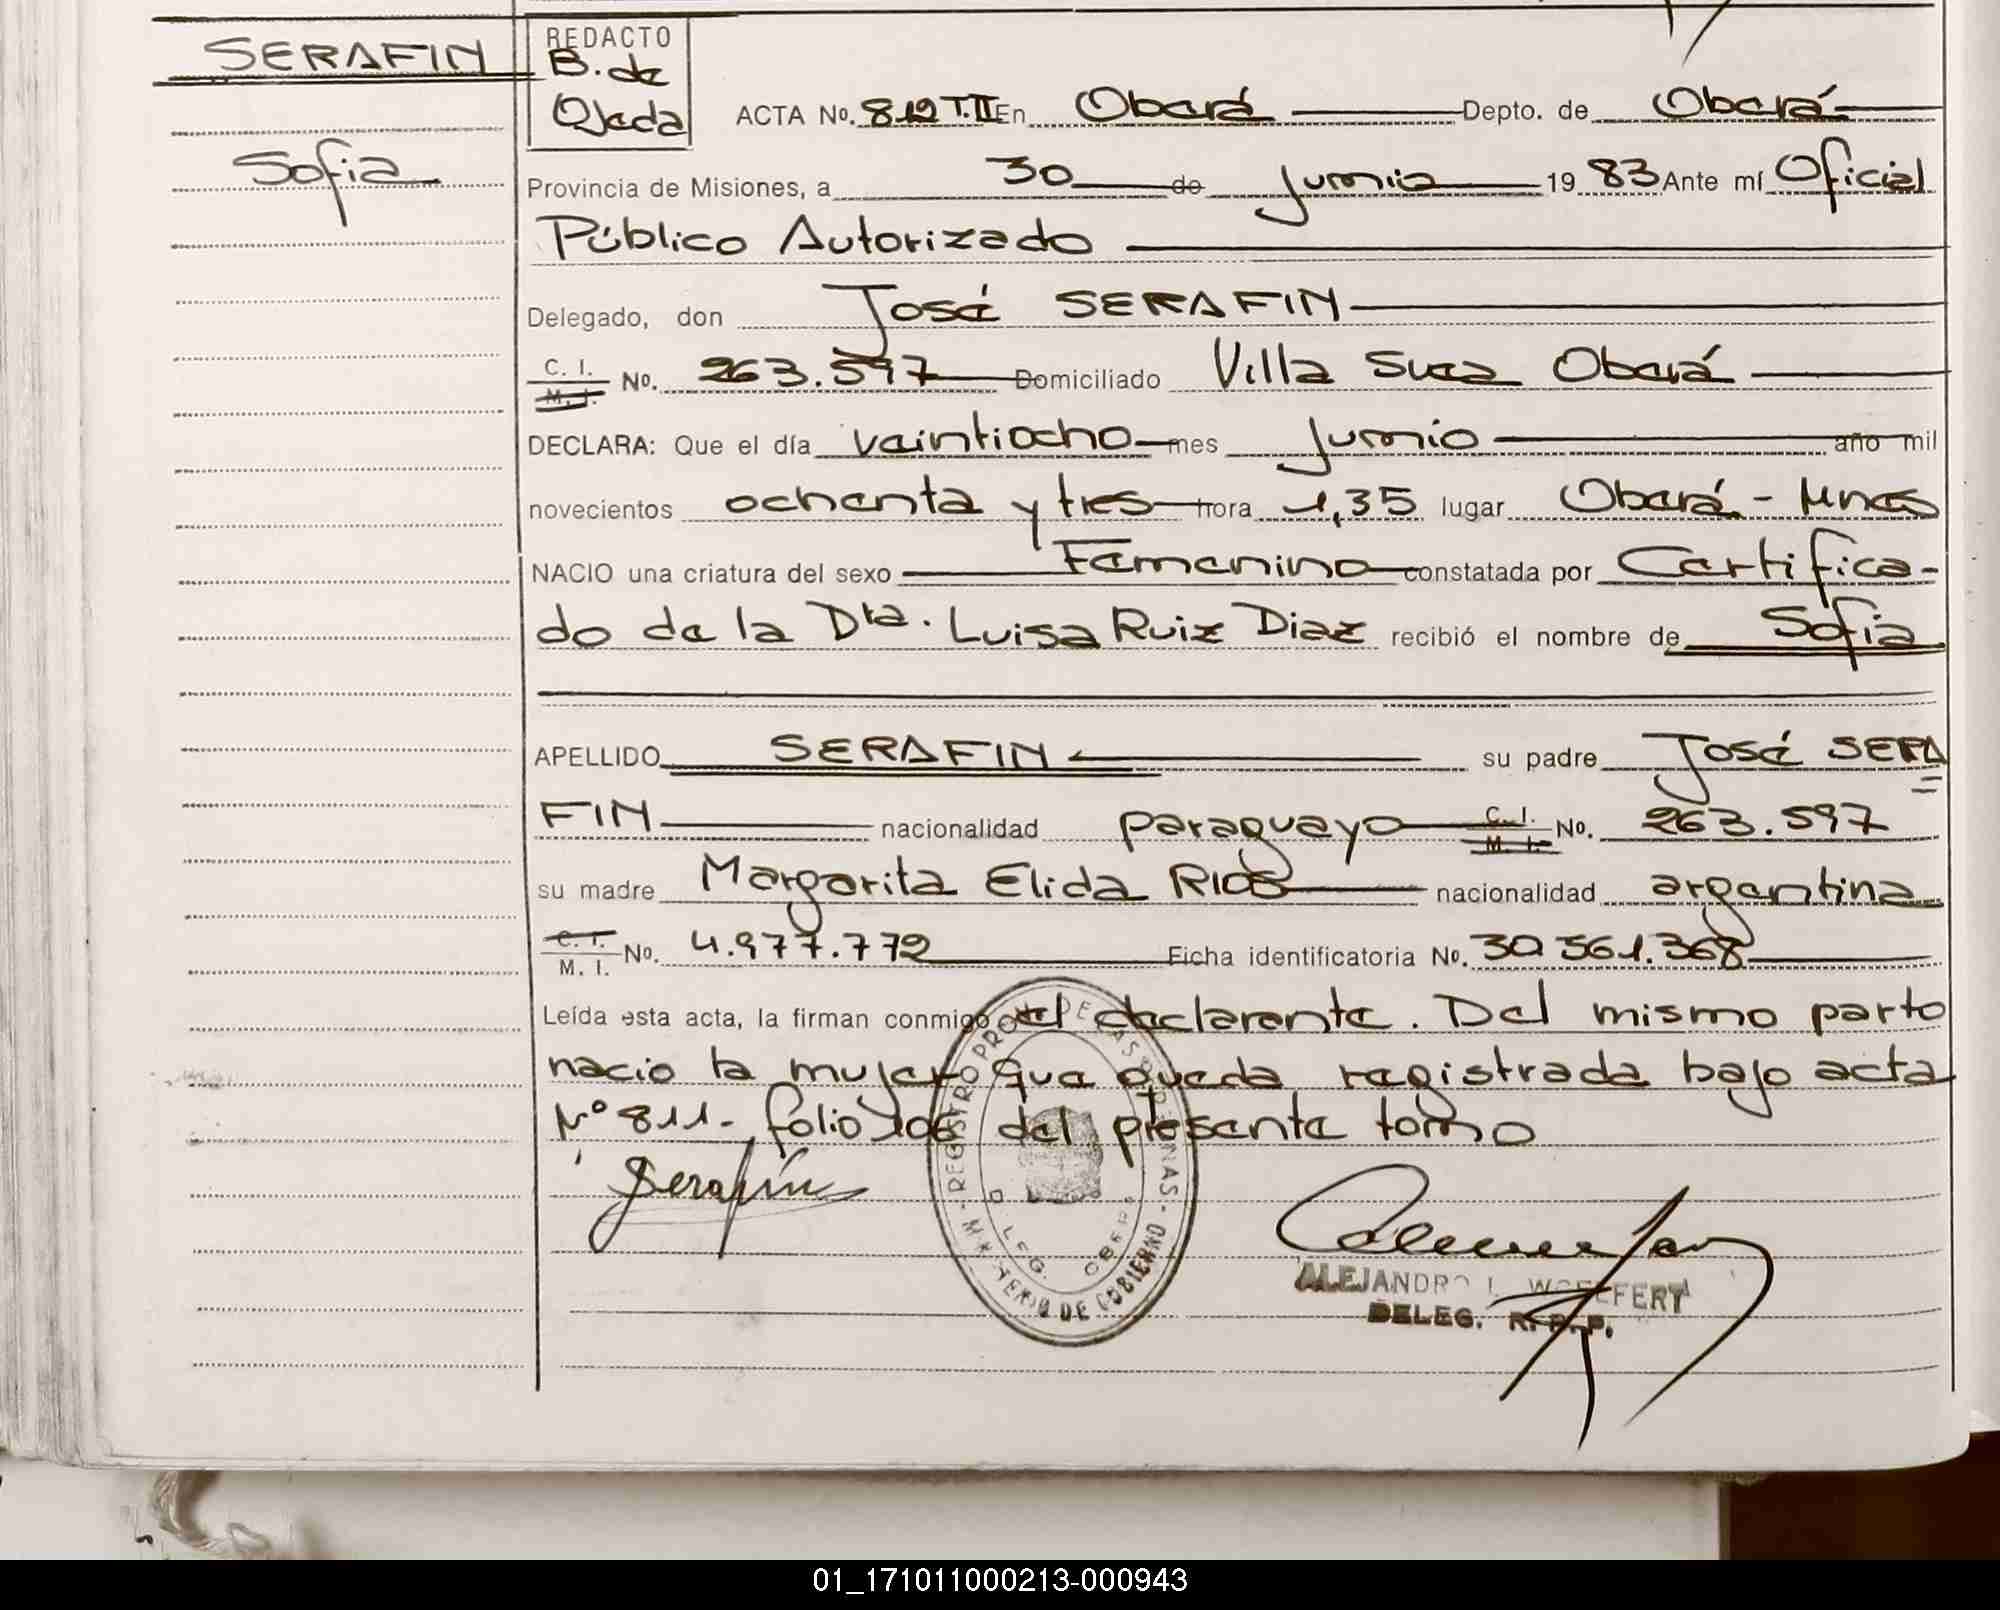 SERAFIN
Sofia
REDACTO
B. de
Ojeda
ACTA No. 812 T.II En Oberá Depto. de Oberá
Provincia de Misiones, a 30 de junio 19 83 Ante mí Oficial
Público Autorizado
Delegado, don José SERAFIN
C. I.
M. I. No. 263.597 Domiciliado Villa Svea Oberá
DECLARA: Que el día veintiocho mes junio año mil
novecientos ochenta y tres hora 1,35 lugar Oberá - Mnes
NACIO una criatura del sexo Femenino constatada por Certifica-
do de la Dra. Luisa Ruiz Diaz recibió el nombre de Sofia
APELLIDO SERAFIN su padre José SERA
FIN nacionalidad paraguayo C. I. M. I. No. 263.597
su madre Margarita Elida RIOS nacionalidad argentina
C. I.
M. I. No. 4.977.772 Ficha identificatoria No. 30 361.368
Leída esta acta, la firman conmigo el declarante. Del mismo parto
nacio la mujer que queda registrada bajo acta
Nº 811- folio 106 del presente tomo
Serafin
REGISTRO PROV. DE LAS PERSONAS
MINISTERIO DE GOBIERNO
DELEG. OBERA
ALEJANDRO L. WOEFFERT
DELEG. R. P. P.
01_171011000213-000943